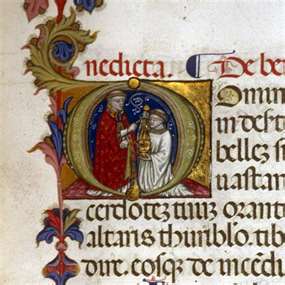 enedicta. De be
Omin
in dest
bellez s
uastan
cerdotez tiuz orant
altaris thuriblo. tibi
dire. eosqz de incēdi